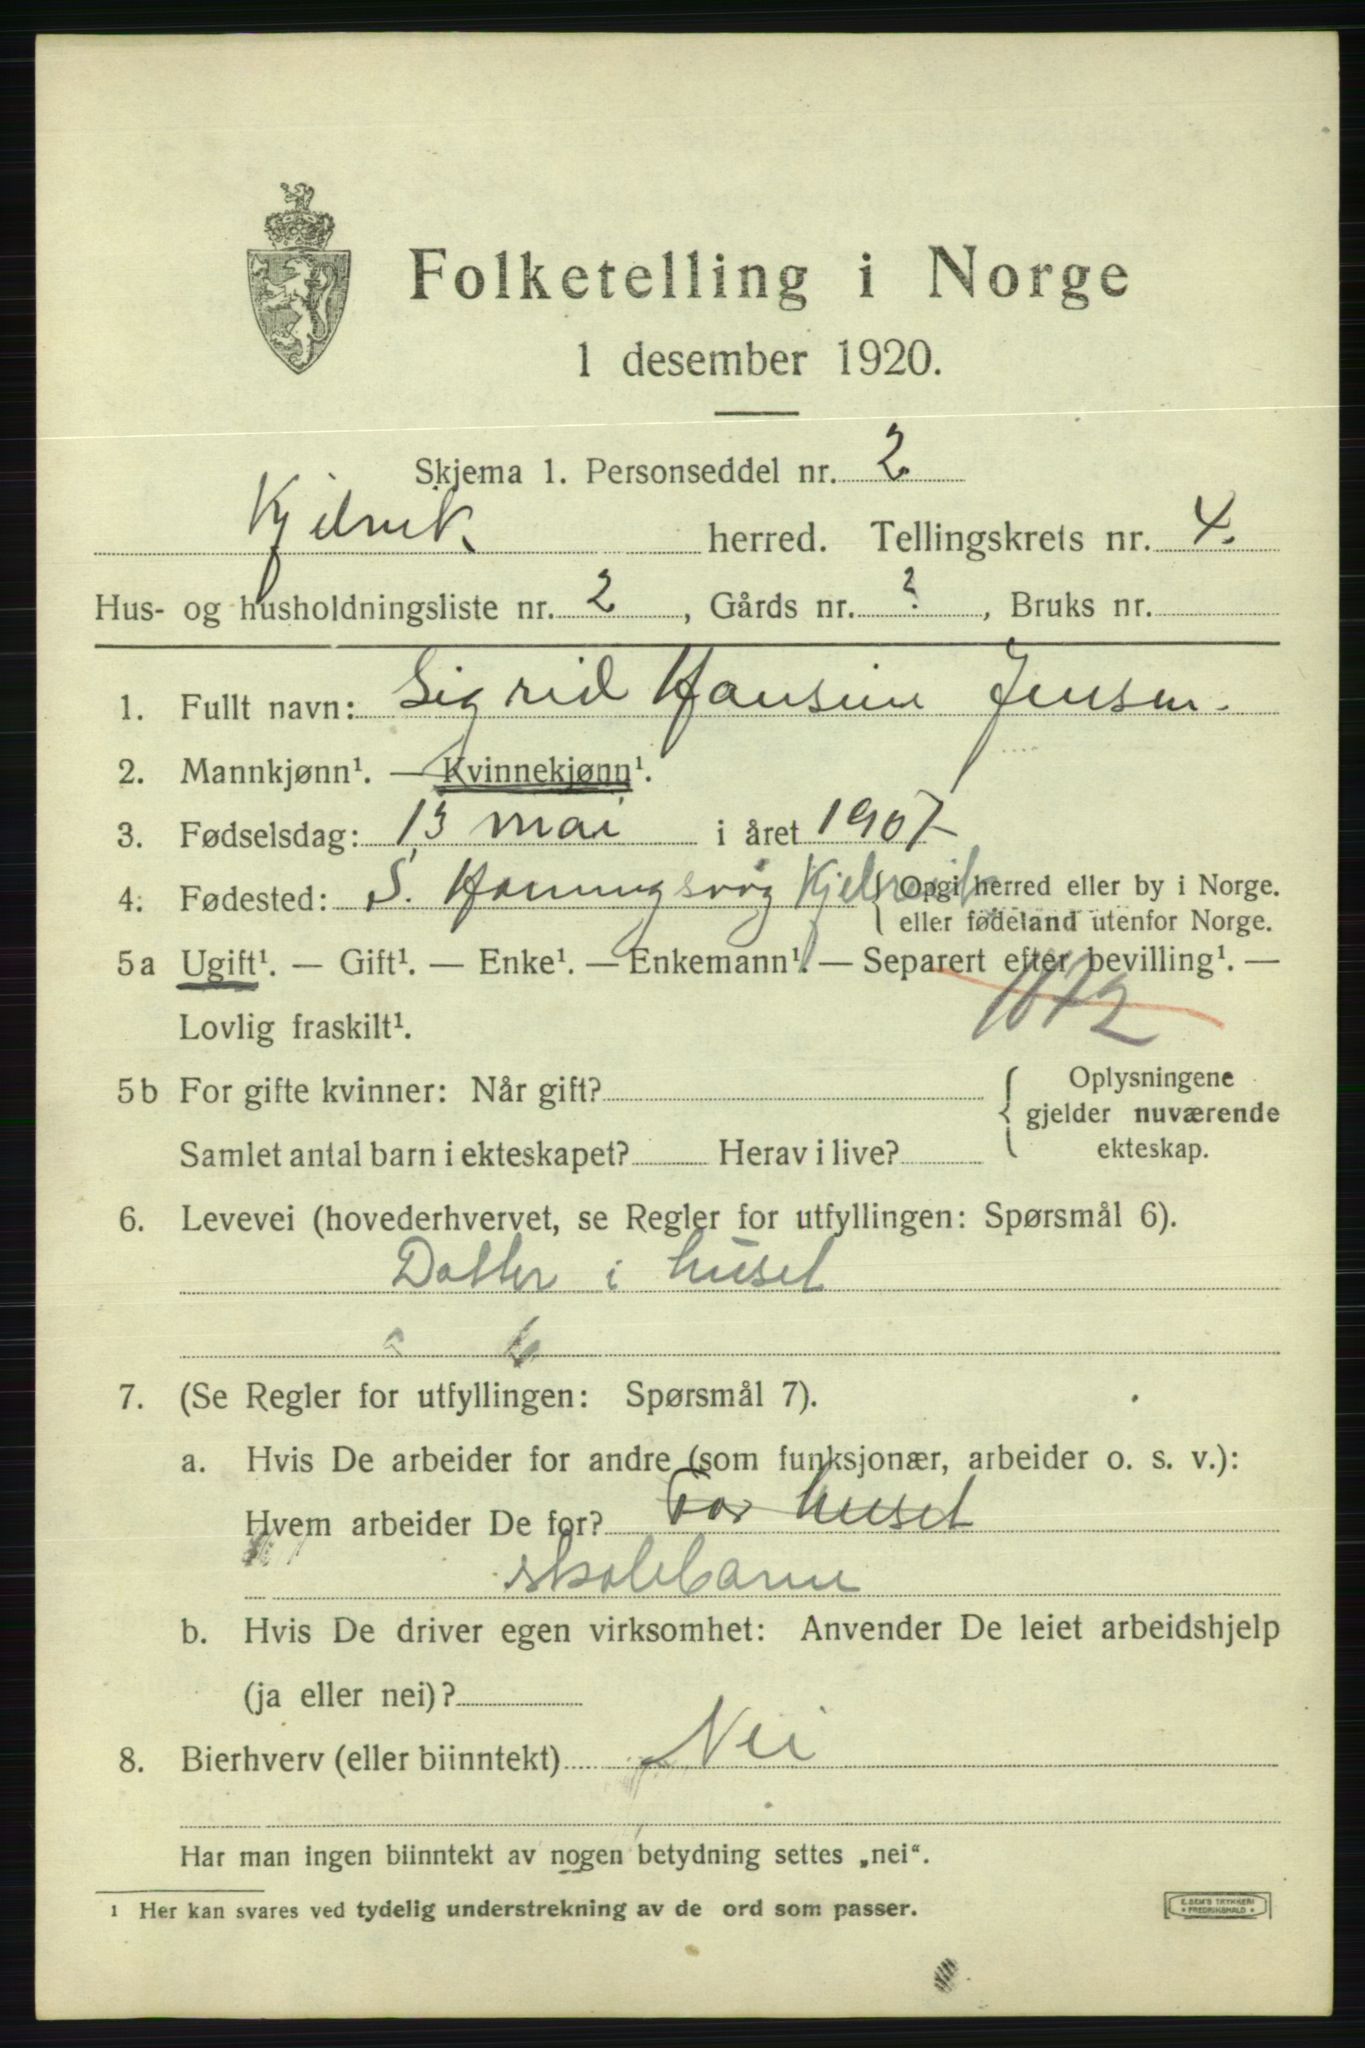 Folketelling i Norge
1 desember 1920.
Skjema 1. Personseddel nr. 2
Kjelvik herred. Tellingskrets nr. 4.
Hus- og husholdningsliste nr. 2, Gårds nr. ?, Bruks nr.
1. Fullt navn: Sigrid Hansine Jensen.
2. Mannkjønn¹. — Kvinnekjønn¹.
3. Fødselsdag: 13 mai i året 1907
4. Fødested: S. Honningsvåg Kjelvik { Opgi herred eller by i Norge.
eller fødeland utenfor Norge.
5a Ugift¹. — Gift¹. — Enke¹. — Enkemann¹. — Separert efter bevilling¹. —
Lovlig fraskilt¹.
5b For gifte kvinner: Når gift? { Oplysningene
gjelder nuværende
Samlet antal barn i ekteskapet? Herav i live? ekteskap.
6. Levevei (hovederhvervet, se Regler for utfyllingen: Spørsmål 6).
Datter i huset
7. (Se Regler for utfyllingen: Spørsmål 7).
a. Hvis De arbeider for andre (som funksjonær, arbeider o. s. v.):
Hvem arbeider De for? For huset
skolebarn
b. Hvis De driver egen virksomhet: Anvender De leiet arbeidshjelp
(ja eller nei)?
8. Bierhverv (eller biinntekt) Nei
Har man ingen biinntekt av nogen betydning settes „nei“.
¹ Her kan svares ved tydelig understrekning av de ord som passer.
E. SEM'S TRYKKERI
FREDRIKSHALD